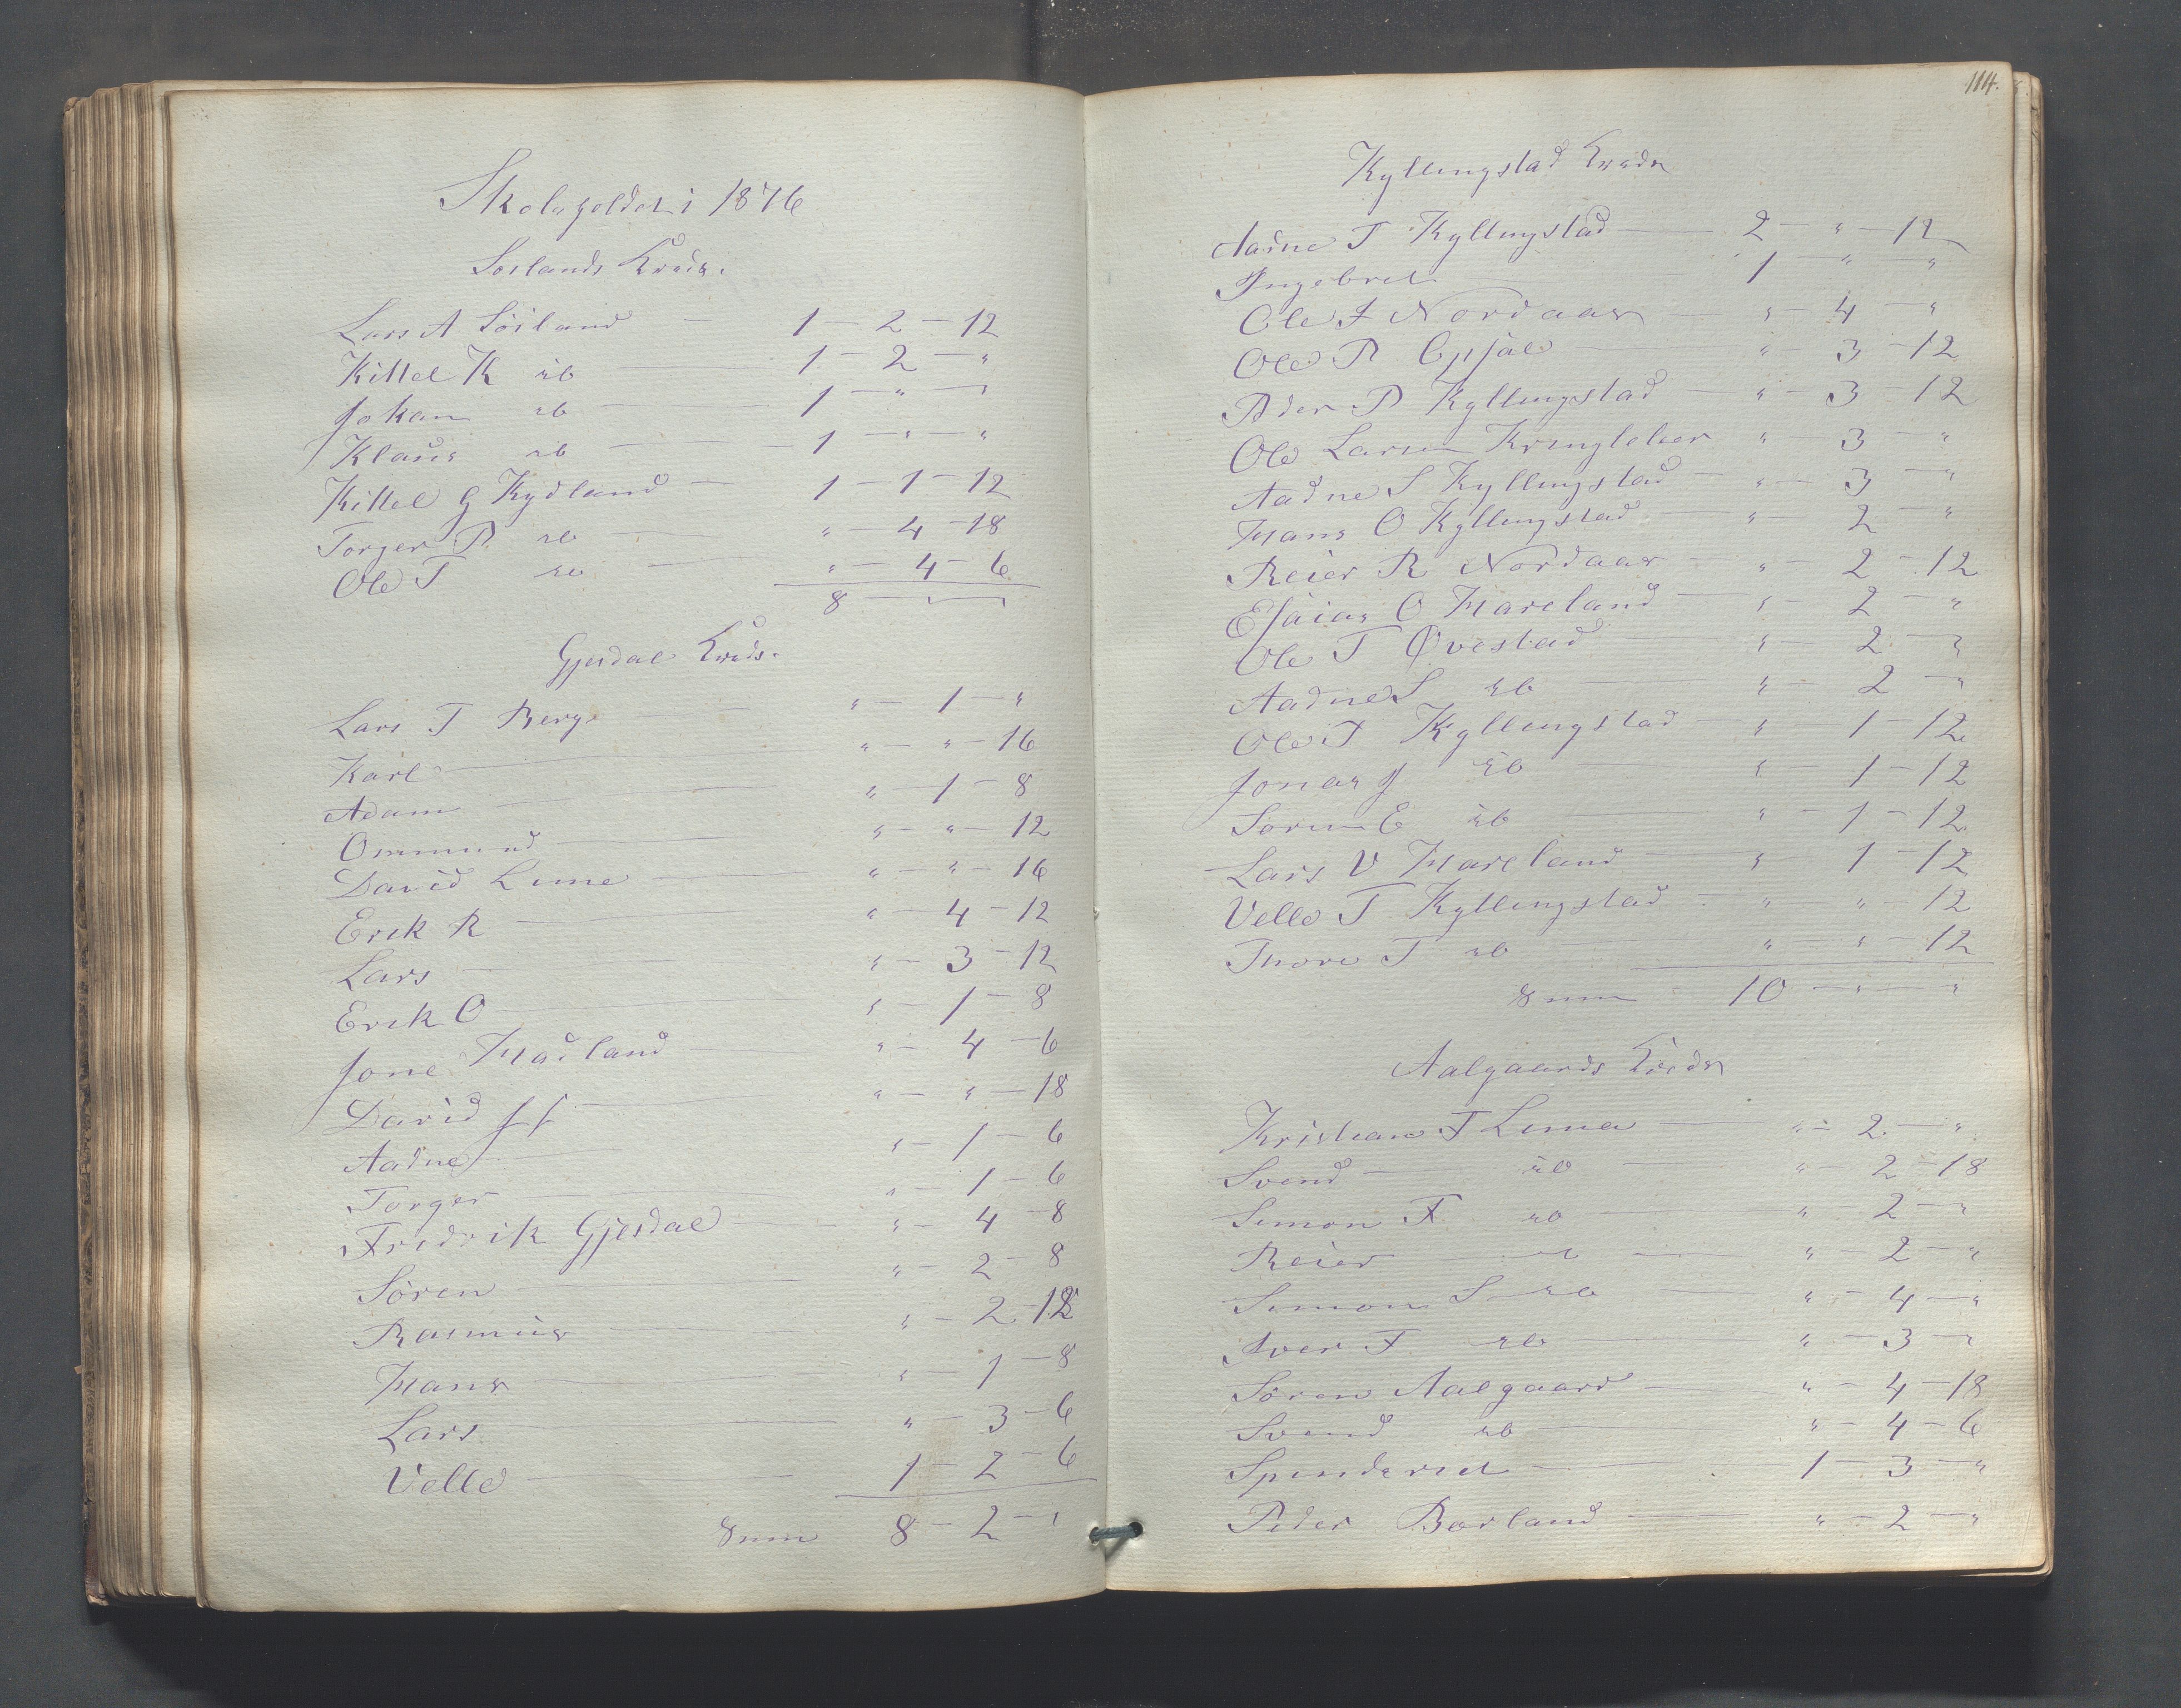 Skolegeldet i 1876
Soilands Kreds.
Lars A. Söiland — 1 — 2 — 12
Kittel K do — 1 — 2 — "
Johan do — 1 — " — "
Klaus do — 1 — " — "
Kittel G Kydland — 1 — 1 — 12
Torger P. do — " — 4 — 18
Ole T do — " — 4 — 6
8 — " — "
Gjesdal Kreds.
Lars T Berge — " — 1 — "
Karl — " — " — 16
Adam — " — 1 — 8
Ommund — " — " — 12
David Lima — " — " — 16
Erik R — " — 4 — 12
Lars — " — 3 — 12
Erik O — " — 1 — 8
Jone Madland — " — 4 — 6
David J — " — " — 18
Aadne — " — 1 — 6
Torger — " — 1 — 6
Fredrik Gjesdal — " — 4 — 8
Sören — " — 2 — 8
Rasmus — " — 2 — 12
Hans — " — 1 — 8
Lars — " — 3 — 6
Velle — 1 — 2 — 6
Sum 8 — 2 — "
114.
Kyllingstad Kreds
Aadne T Kyllingstad — 2 — " — 12
Ingebret — 1 — " — "
Ole T Nordaas — " — 4 — "
Ole P — " — 3 — 12
Peder P Kyllingstad — " — 3 — 12
Ole Larsen Kringleber " — 3 — "
Aadne S Kyllingstad — " — 3 — "
Hans O Kyllingstad — " — 2 — "
Reier R Nordaas — " — 2 — 12
Esaias O Hareland — " — 2 — "
Ole T Øvestad — " — 2 — "
Aadne S do — " — 2 — "
Ole T Kyllingstad — " — 1 — 12
Jonas J do — " — 1 — 12
Soren E do — " — 1 — 12
Lars V Hareland — " — 1 — 12
Velle T Kyllingstad — " — " — 12
Thore T do — " — " — 12
Sum 10 — " — "
Aalgaards Kreds
Kristian T Lima — " — 2 — "
Svend — do — " — 2 — 18
Simon T. do — " — 2 — "
Reier — do — " — 2 — "
Simon S do — " — 4 — "
Iver T do — " — 3 — "
Sören Aalgaard — " — 4 — 18
Svend do — " — 4 — 6
Spinderiet — 1 — 3 — "
Peder Borland — " — 2 — "